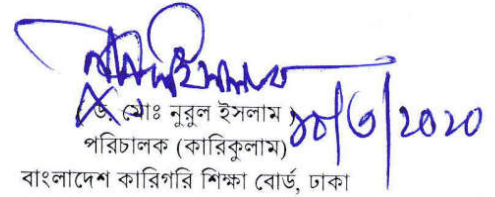 (ড. মোঃ নুরুল ইসলাম )
পরিচালক (কারিকুলাম)
বাংলাদেশ কারিগরি শিক্ষা বোর্ড, ঢাকা